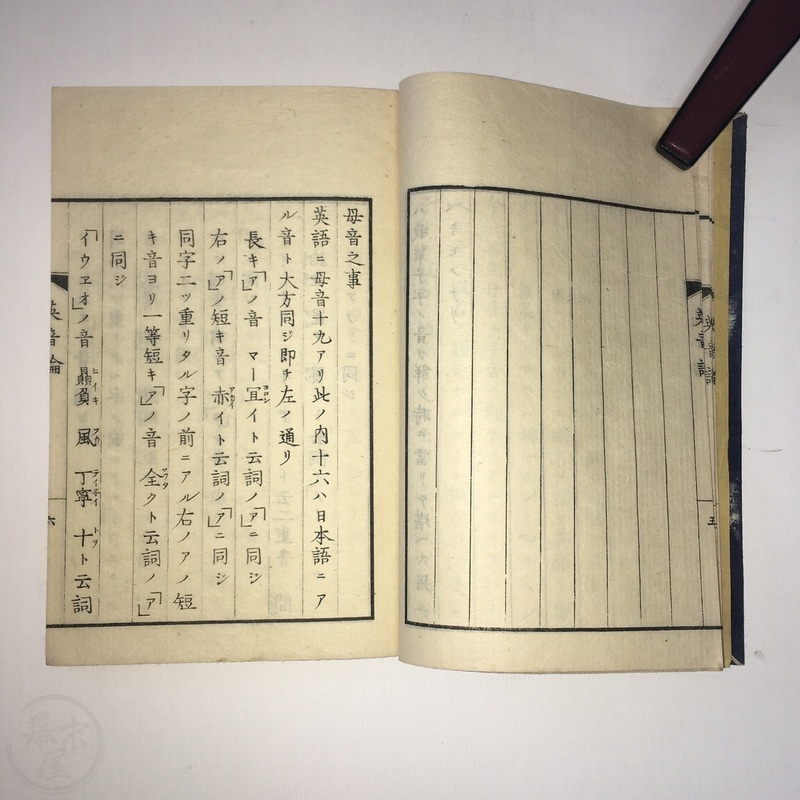 英音論
五
母音之事
英語ニ母音十九アリ此ノ内十六ハ日本語ニア
ル音ト大方同ジ即チ左ノ通リ
長キ「ア」ノ音 マー冝イト云詞ノ「ア」ニ同ジ
右ノ「ア」ノ短キ音 赤イト云詞ノ「ア」ニ同ジ
同字二ッ重リタル字ノ前ニアル右ノアノ短
キ音ヨリ一等短キ「ア」ノ音 全クト云詞ノ「ア」
ニ同ジ
「イウヱオ」ノ音 贔負 風 丁寧 十ト云詞
英音論
六
幕末屋